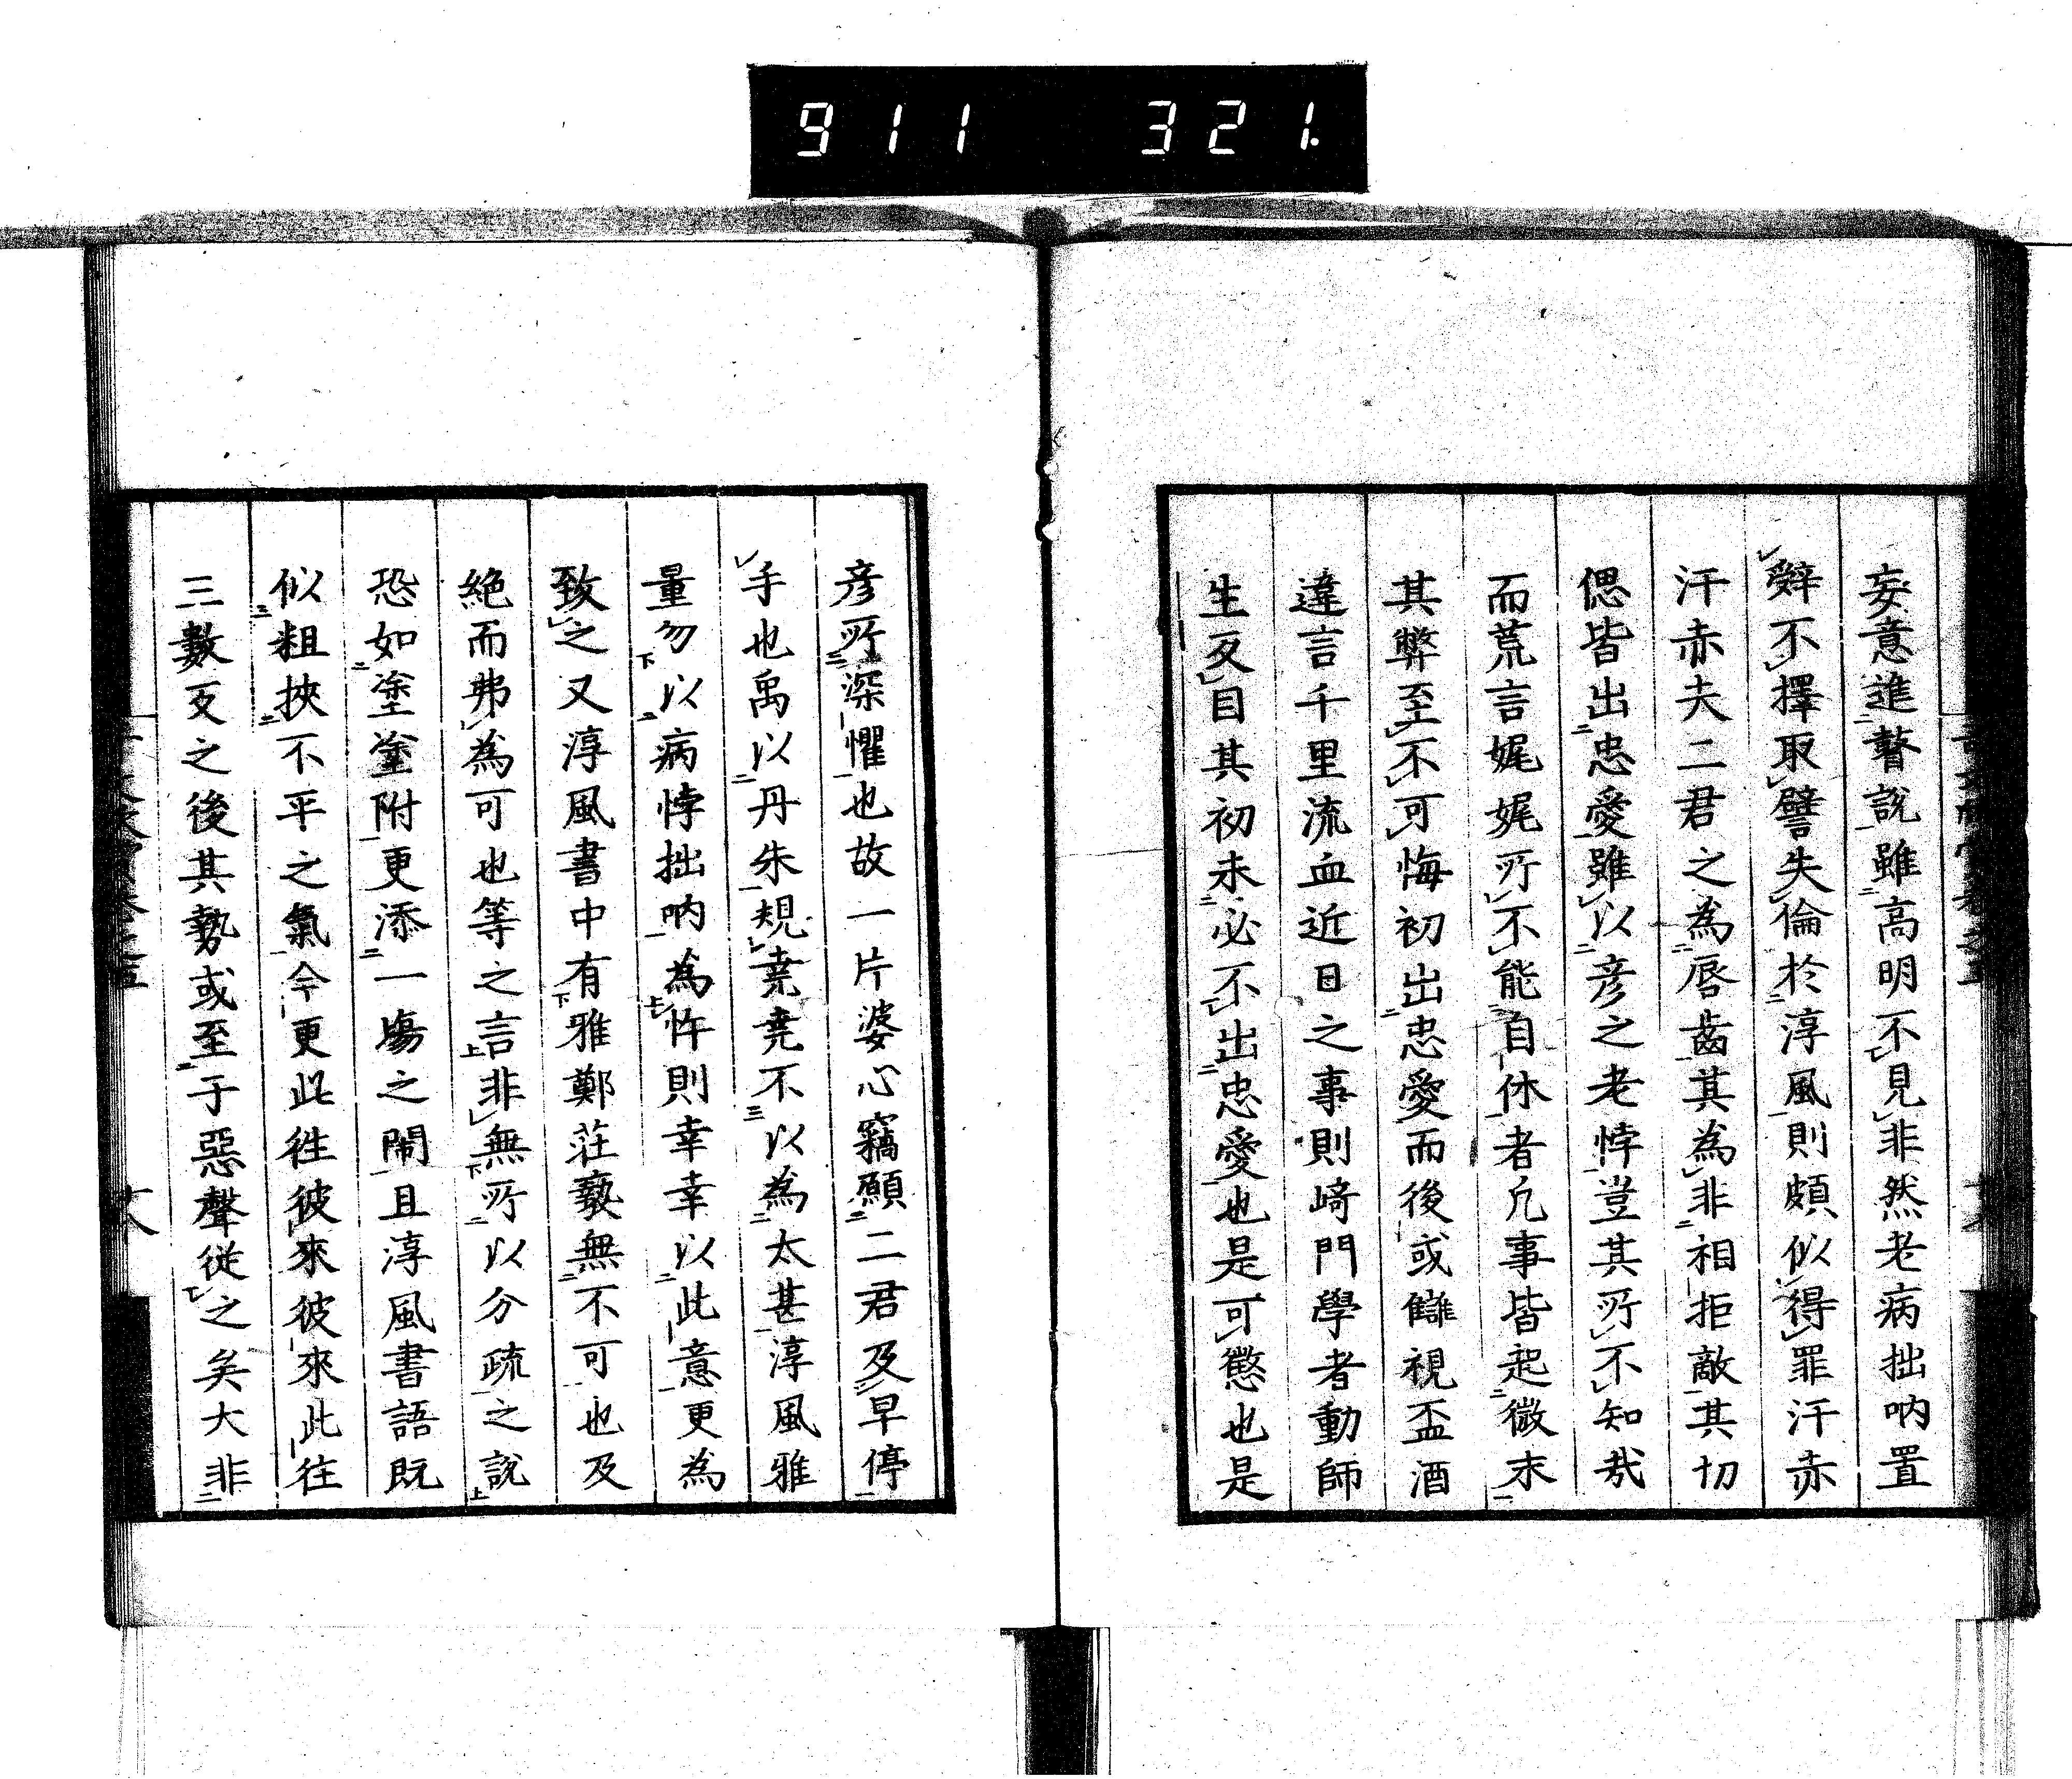 911 321.
妄意進瞽說雖高明不見非然老病拙吶置
辭不擇取譬失倫於淳風則頗似得罪汗赤
汗赤夫二君之為唇齒其為非相拒敵其切
偲皆出忠愛雖以彥之老悖豈其所不知哉
而荒言娓娓所不能自休者凡事皆起微末
其弊至不可悔初出忠愛而後或讎視盃酒
違言千里流血近日之事則﨑門學者動師
生友目其初未必不出忠愛也是可懲也是
彥所深懼也故一片婆心竊願二君及早停
手也禹以丹朱規堯堯不以為太甚淳風雅
量勿以病悖拙吶為忤則幸幸以此意更為
致之又淳風書中有雅鄭莊褻無不可也及
絕而弗為可也等之言非無所以分疏之說
恐如塗塗附更添一場之鬧且淳風書語既
似粗挾不平之氣今更此往彼來彼來此往
三數反之後其勢或至于惡聲從之矣大非